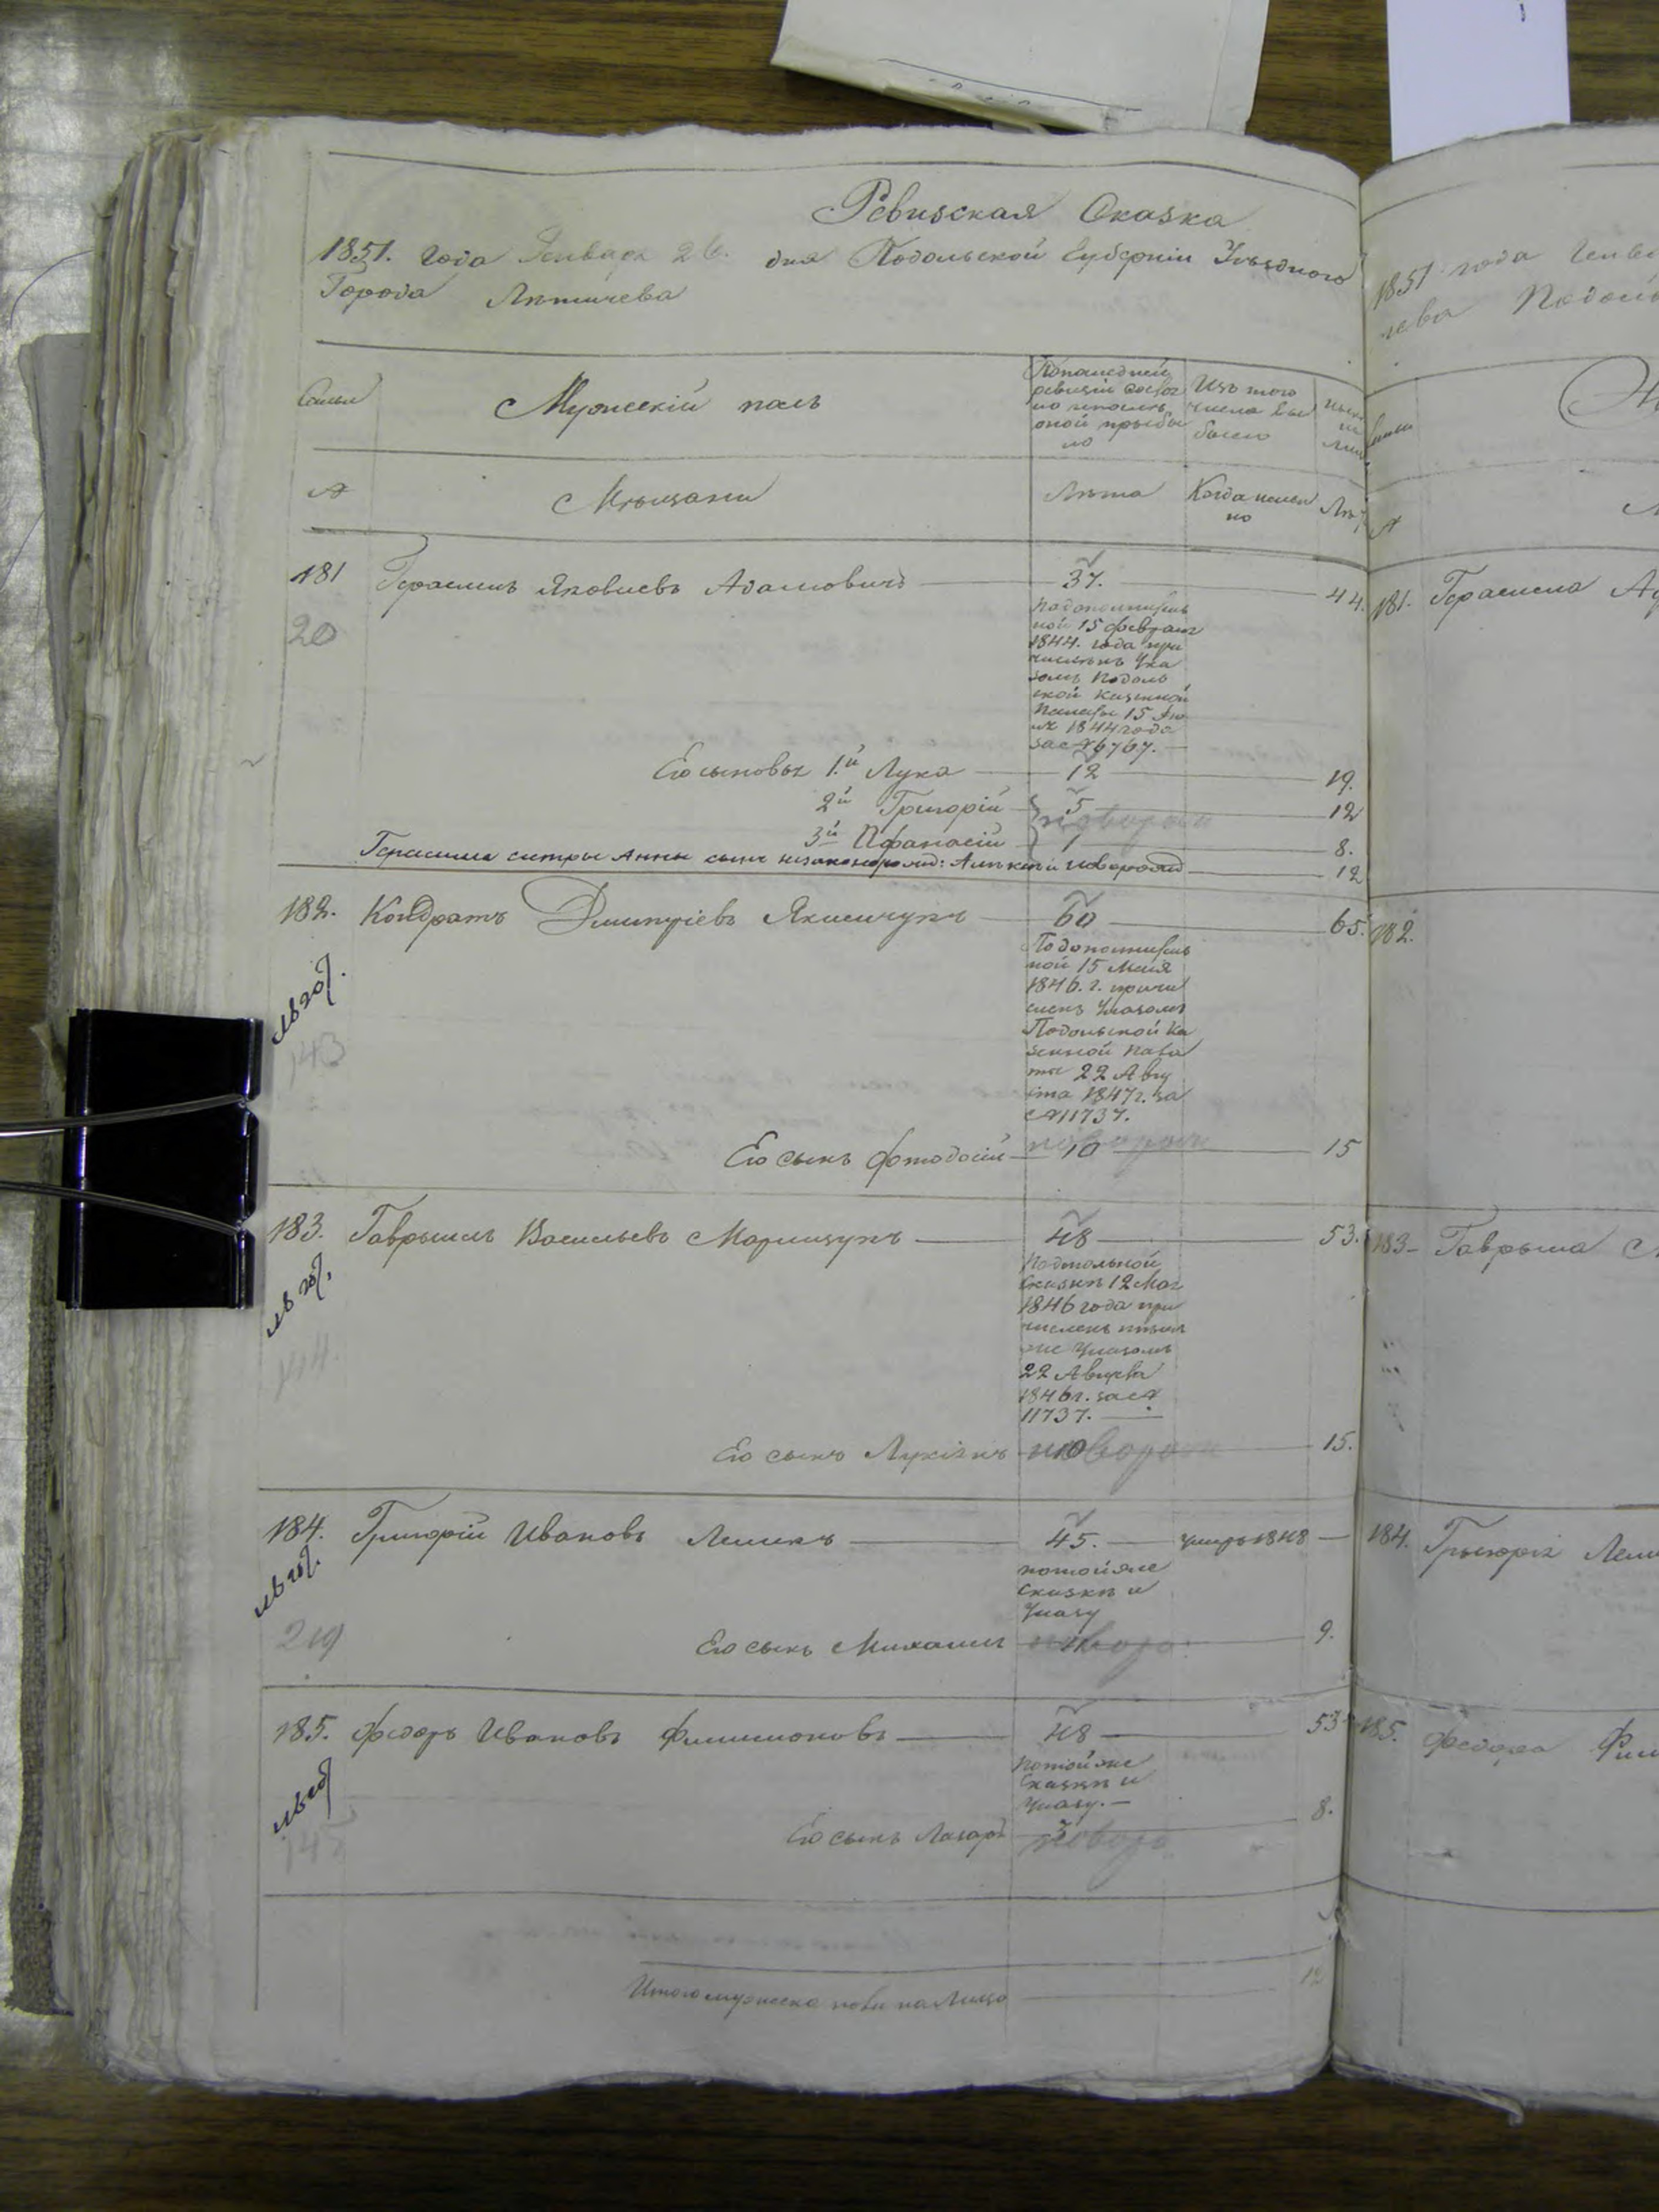 Ревизская Сказка
1851. года Генваря 26. дня Подольской Губерніи Уѣзднаго
Города Лѣтичева
Семьи
Мужескій полъ
По последней
ревизіи состоя
ло и послѣ
оной прибы
ло
Изъ того
числа вы
было
№
Мѣщани
Лѣта
Когда имен
но
Лѣ
181 Герасимъ Яковлевъ Адамовичъ 37. 44.
20
ной 15 февраля
1844. года при
численъ Ука
зомъ Подоль
ской Казенной
Палаты 15 Ію
ля 1844 года
за № 6767.
Его сыновья 1й Лука 12 19.
2й Григорій 5 12
3й Афанасій 1 8.
Герасима сестры Анны сынъ незаконорожд: Алексѣй новорожд 12
182. Кондратъ Дмитріевъ Якимчукъ 60 65.
ной 15 Мая
1846. г. причи
сленъ Указомъ
Подольской Ка
зенной Пала
ты 22 Авгу
ста 1847 г. за
№ 11737.
143
Его сынъ Фотодосій 10 15
183. Гаврыилъ Васильевъ Марцишукъ 48 53.
Сказкѣ 12 Мая
1846 года при
численъ тѣмъ
же Указомъ
22 Августа
1846 г. за №
11737.
144.
Его сынъ Лукіянъ 10 15.
184. Григорій Ивановъ Лешкъ 45. умеръ 1848
по той же
Сказкѣ и
Указу
219
Его сынъ Михаилъ 9.
185. Федоръ Ивановъ Филимоновъ 48 53
По той же
Сказкѣ и
Указу.
145
Его сынъ Лазаръ 3 8.
Итого мужеска пола на Лицо 12
1851 года Генва
чева Подоль
181. Герасима А
182.
183 Гаврыла
184. Грыгорія Леш
185. Федора Фил